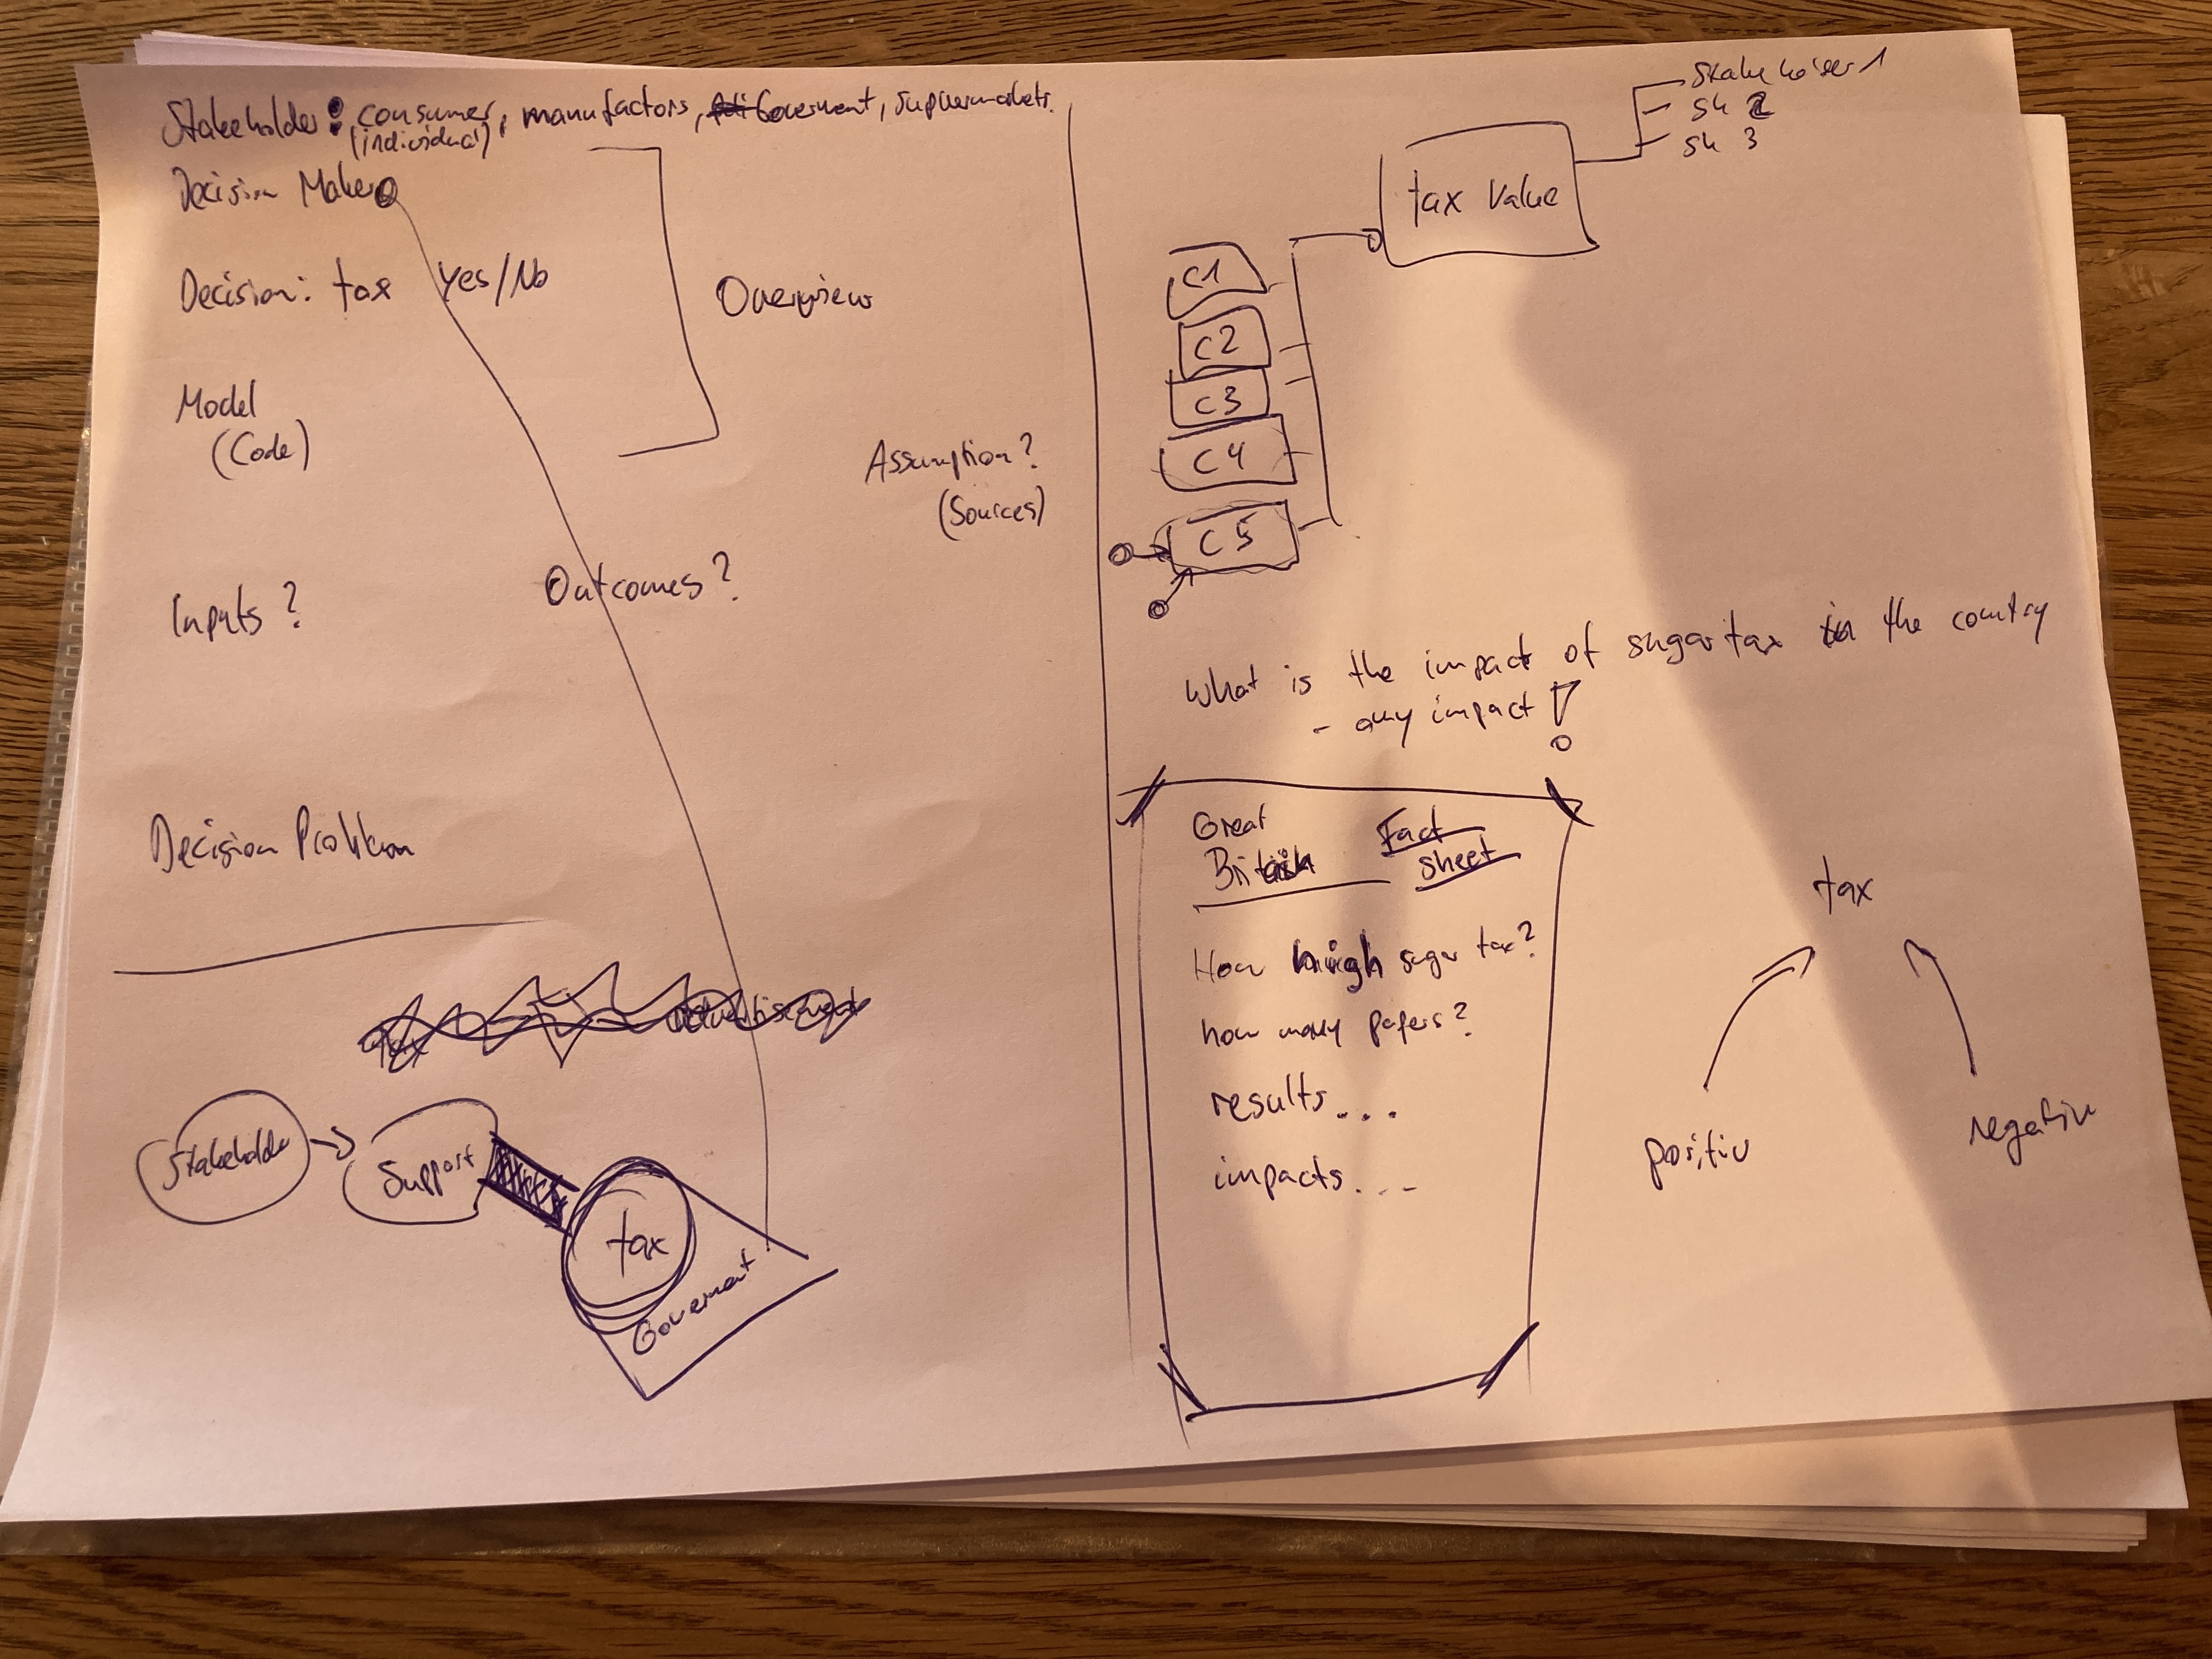 Stakeholder: consumer, manufactors, Goverment, Supuermarkets.
(individual)
Decision Maker
Decision: tax Yes/No
Overview
Model
(Code)
Assumption?
(Sources)
Inputs?
Outcomes?
Decision Problem
tax
Stakeholder
Support
tax
Goverment
Stakeholder 1
Sh 2
Sh 3
tax value
C1
C2
C3
C4
C5
What is the impact of sugar tax in the country
- any impact!
Great
Britain
Fact
sheet
How high sugar tax?
how many papers?
results...
impacts...
tax
positiv
negativ